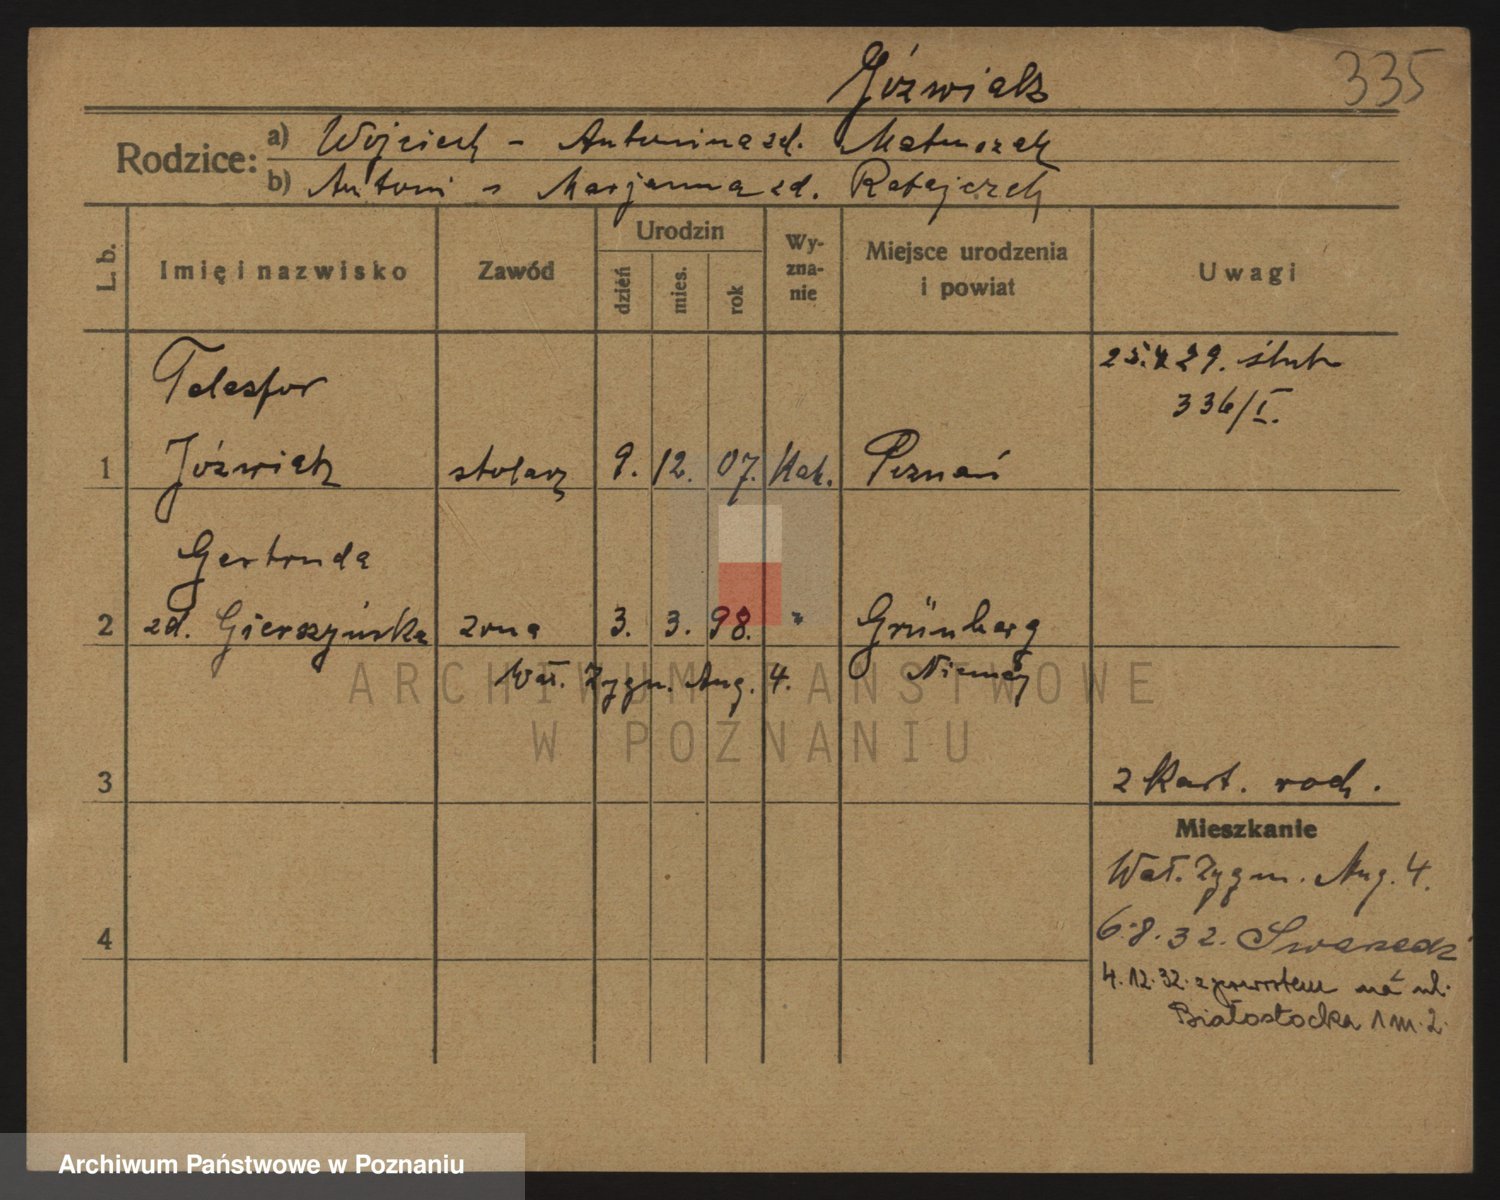 335
Jóźwiak
Rodzice:
a) Wojciech - Antonina zd. Matuszak
b) Antoni - Marjanna zd. Ratajczak
L. b.
Imię i nazwisko
Zawód
Urodzin
dzień
mies.
rok
Wy-
zna-
nie
Miejsce urodzenia
i powiat
Uwagi
29. ślub
336/I.
Telesfor
1 Jóźwiak stolarz 9. 12. 07. Kat. Poznań
Gertruda
2 zd. Gierszyńska żona 3. 3. 98. " Grünberg
Wał. Zygm. Aug. 4. Niemcy
3
2 Kart. rodz.
Mieszkanie
Wał. Zygm. Aug. 4.
6.8.32. Swarzędz
4
4.12.32. z powrotem na ul.
Białostocka 1 m. 2.
ARCHIWUM PAŃSTWOWE
W POZNANIU
Archiwum Państwowe w Poznaniu